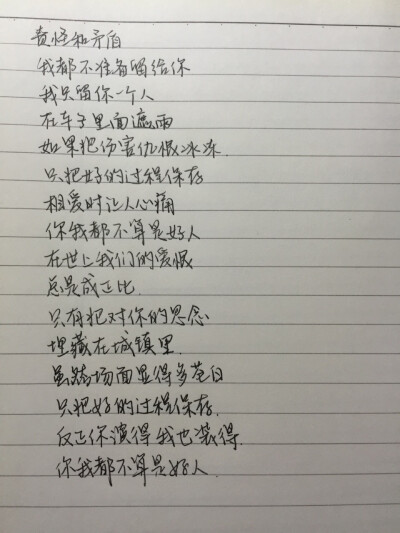 责怪和矛盾
我都不准备留给你
我只留你一个人
在车子里面遮雨
如果把伤害仇恨冰冻
只把好的过程保存
相爱时让人心痛
你我都不算是好人
在世上我们的爱恨
总是成正比
只有把对你的思念
埋藏在城镇里
虽然场面显得多苍白
只把好的过程保存
反正你演得我也装得
你我都不算是好人